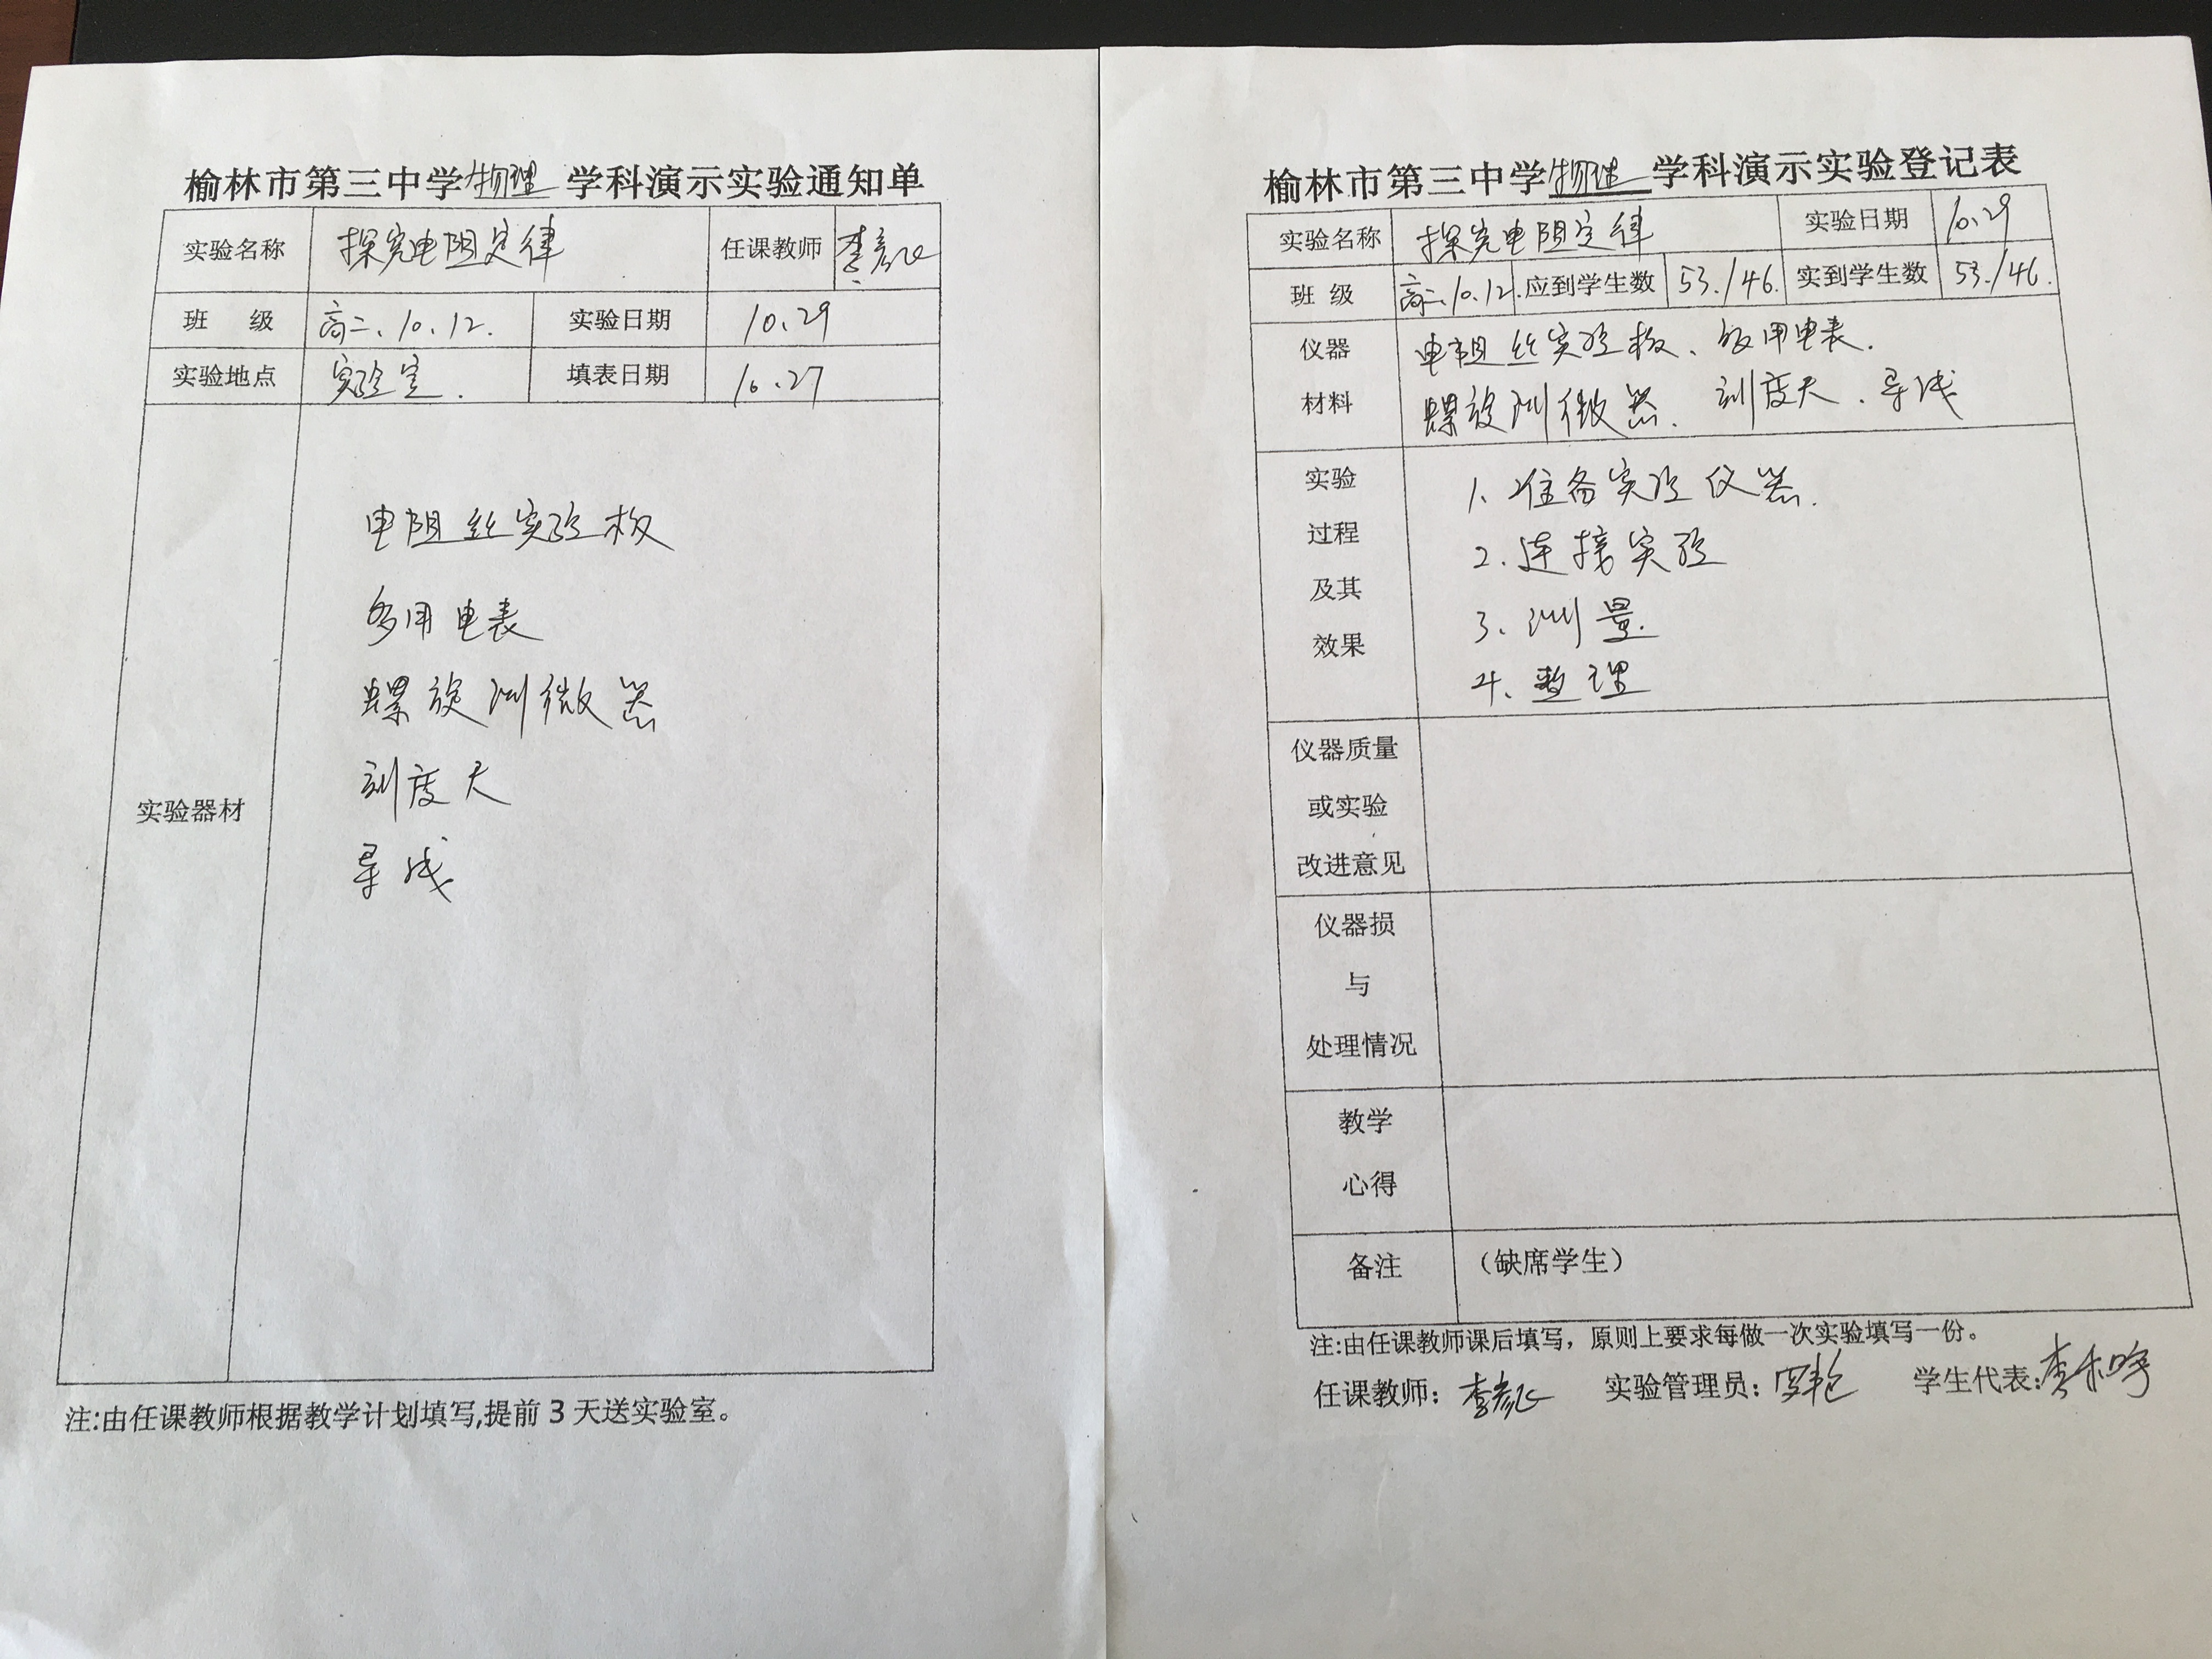 榆林市第三中学物理学科演示实验通知单
实验名称 探究电阻定律 任课教师 李彦
班 级 高二、10、12. 实验日期 10.29
实验地点 实验室. 填表日期 10.27
实验器材
电阻丝实验板
多用电表
螺旋测微器
刻度尺
导线
注:由任课教师根据教学计划填写,提前3天送实验室。
榆林市第三中学物理学科演示实验登记表
实验名称 探究电阻定律 实验日期 10.29
班 级 高二、10.12. 应到学生数 53./46. 实到学生数 53./46.
仪器
材料
电阻丝实验板、多用电表.
螺旋测微器、刻度尺、导线
实验
过程
及其
效果
1、准备实验仪器.
2.连接实验
3、测量.
4、整理
仪器质量
或实验
改进意见
仪器损
与
处理情况
教学
心得
备注 （缺席学生）
注:由任课教师课后填写，原则上要求每做一次实验填写一份。
任课教师：李彦 实验管理员： 学生代表:李